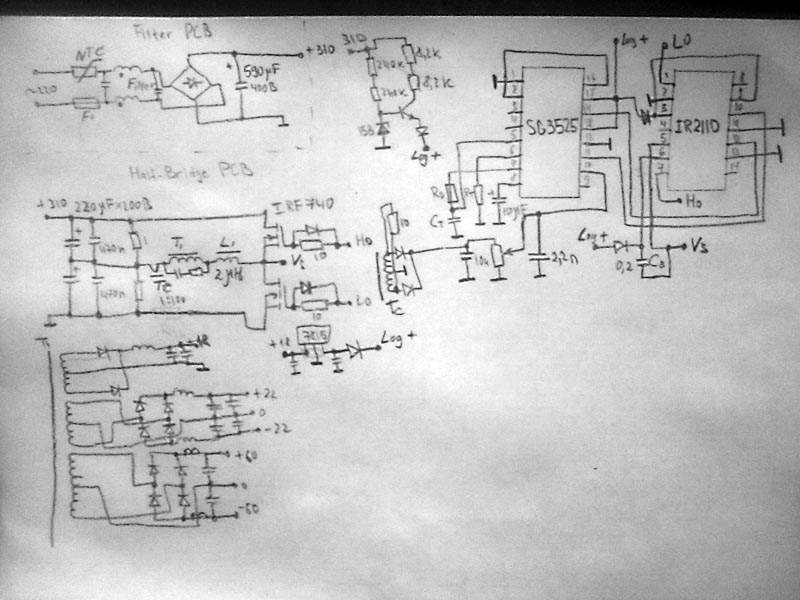 Filter PCB
NTC
~220
F1
Filter
590µF
400В
+310
310
240K
240K
8,2K
8,2K
15В
Log+
SG3525
Log+
LO
IR2110
HO
Rt
Cт
10µF
Half-Bridge PCB
+310
220µF×200В
IRF740
470n
470n
1
T1
L1
2µH
Tc
1:100
Vs
HO
LO
10
10
10
Tc
10k
2,2n
Log+
0,2
Cв
Vs
+18
7815
Log+
T1
+22
0
-22
+60
0
-60